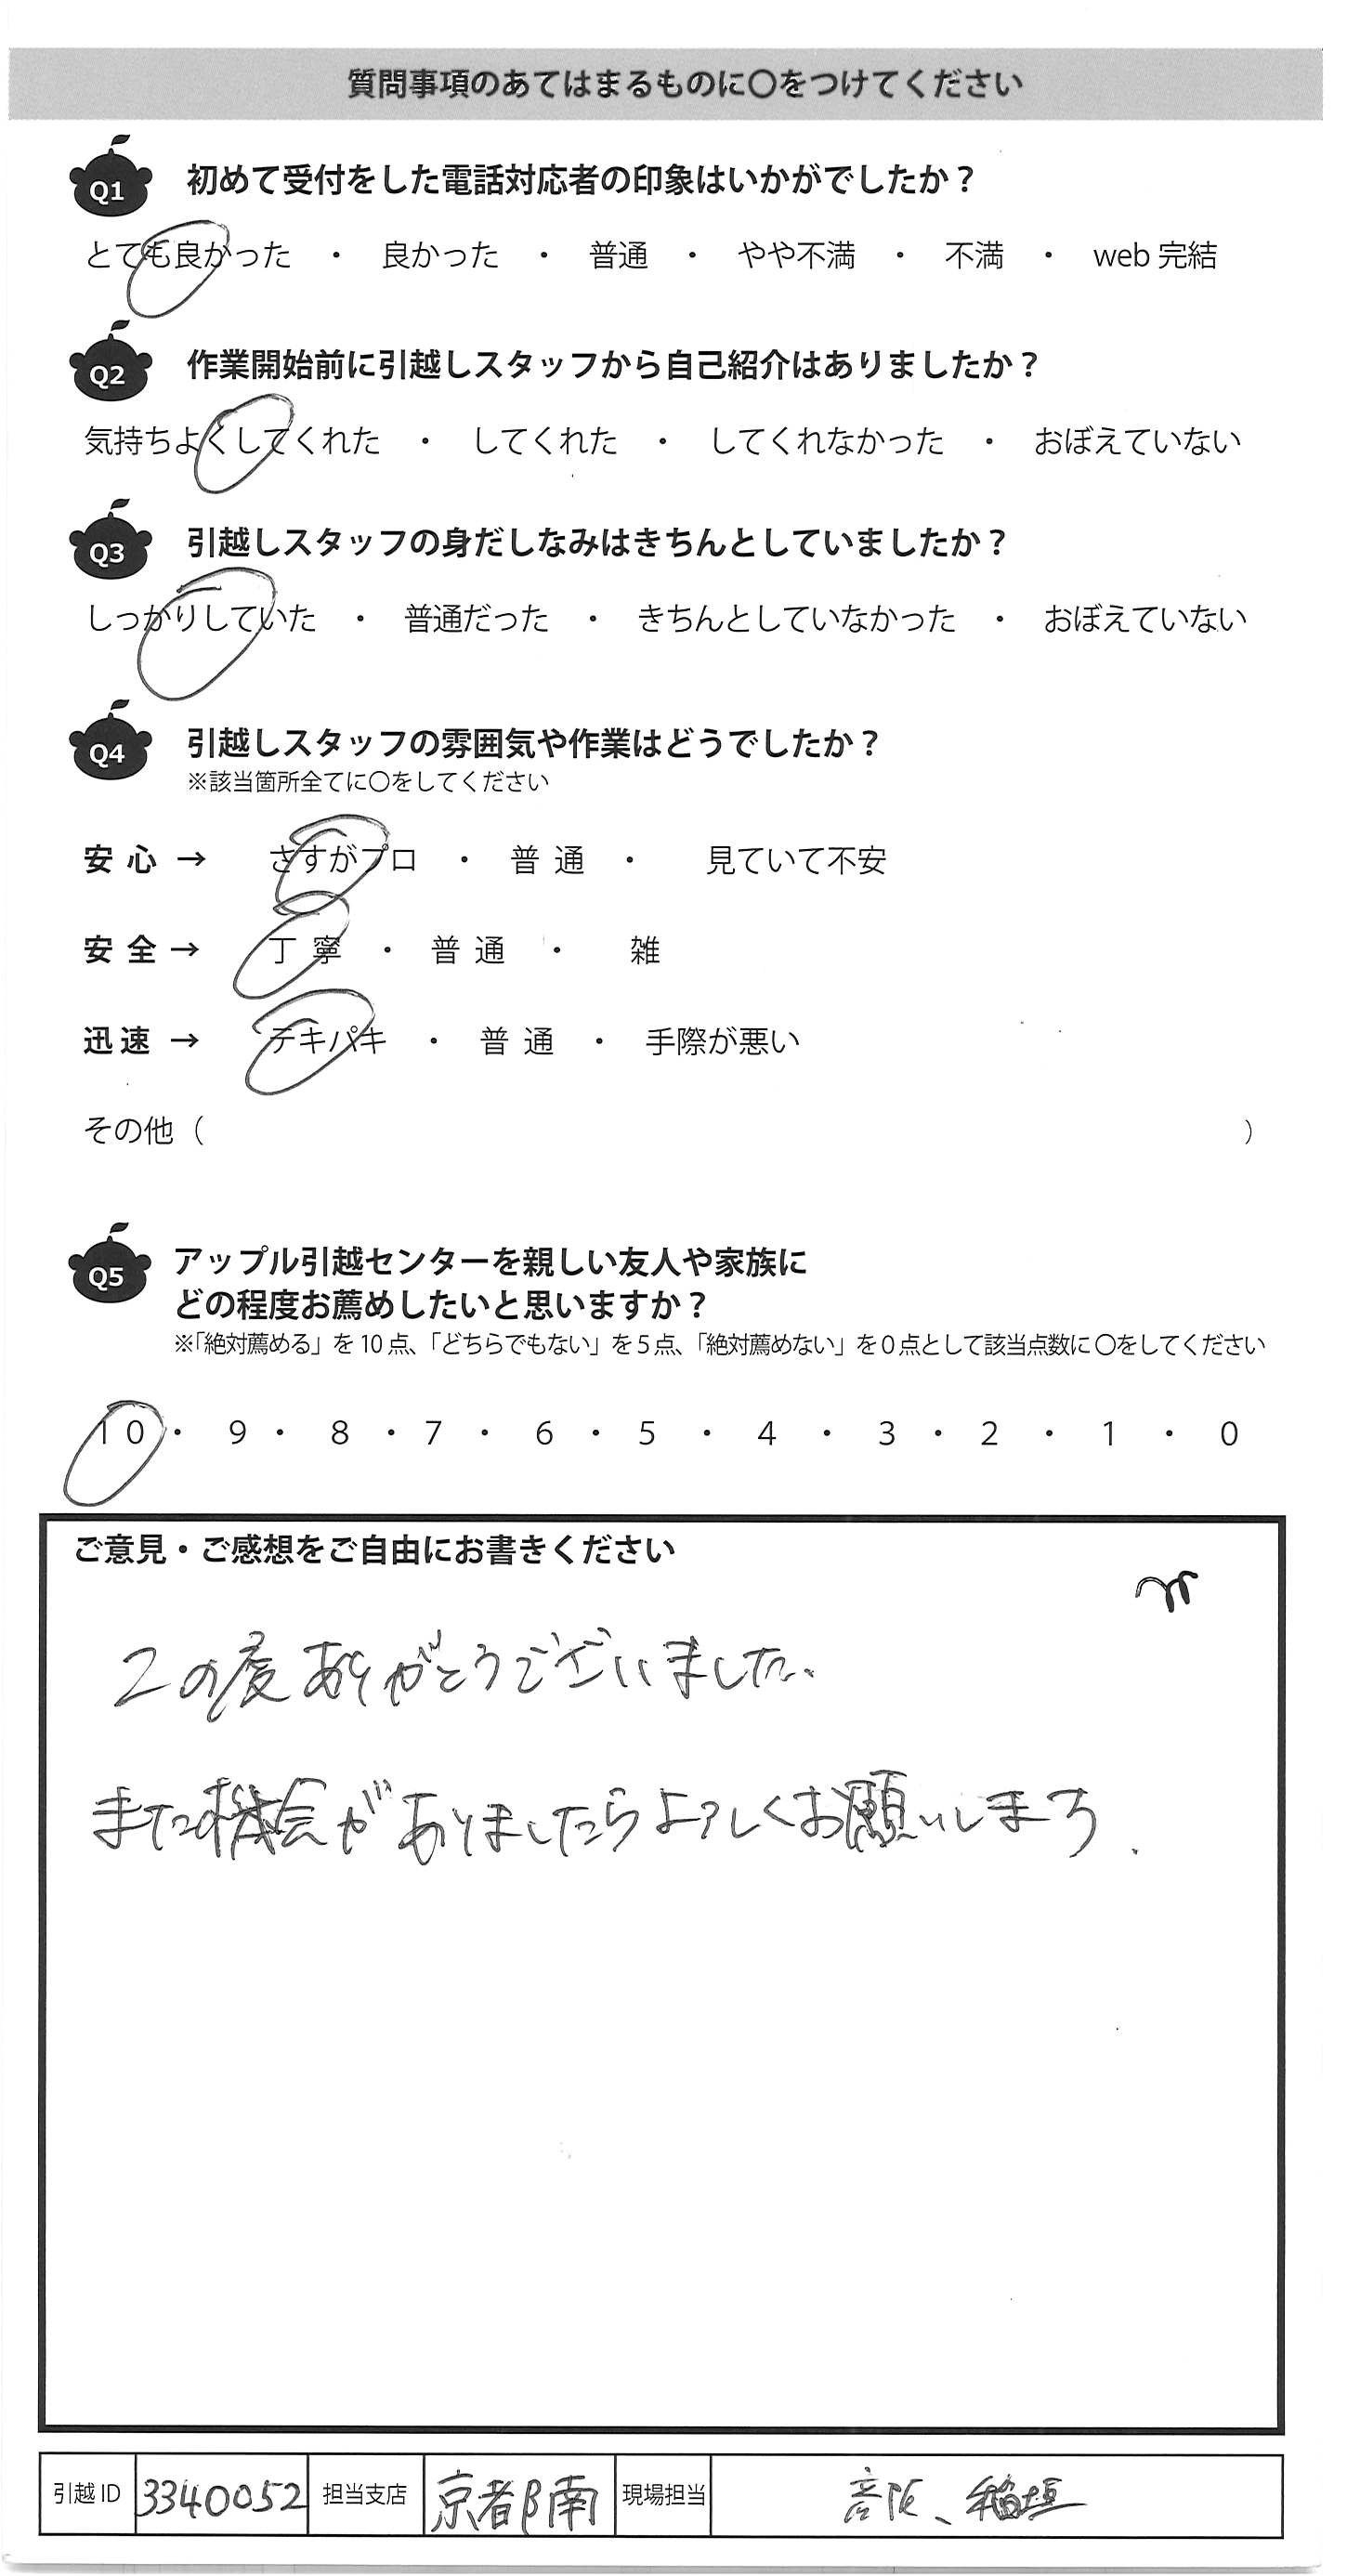 質問事項のあてはまるものに〇をつけてください
Q1 初めて受付をした電話対応者の印象はいかがでしたか？
とても良かった ・ 良かった ・ 普通 ・ やや不満 ・ 不満 ・ web 完結
Q2 作業開始前に引越しスタッフから自己紹介はありましたか？
気持ちよくしてくれた ・ してくれた ・ してくれなかった ・ おぼえていない
Q3 引越しスタッフの身だしなみはきちんとしていましたか？
しっかりしていた ・ 普通だった ・ きちんとしていなかった ・ おぼえていない
Q4 引越しスタッフの雰囲気や作業はどうでしたか？
※該当箇所全てに〇をしてください
安心 → さすがプロ ・ 普通 ・ 見ていて不安
安全 → 丁寧 ・ 普通 ・ 雑
迅速 → テキパキ ・ 普通 ・ 手際が悪い
その他（ ）
Q5 アップル引越センターを親しい友人や家族に
どの程度お薦めしたいと思いますか？
※「絶対薦める」を10点、「どちらでもない」を5点、「絶対薦めない」を0点として該当点数に〇をしてください
10 ・ 9 ・ 8 ・ 7 ・ 6 ・ 5 ・ 4 ・ 3 ・ 2 ・ 1 ・ 0
ご意見・ご感想をご自由にお書きください
この度ありがとうございました。
また機会がありましたらよろしくお願いします.
引越ID 3340052 担当支店 京都南 現場担当 、稲垣